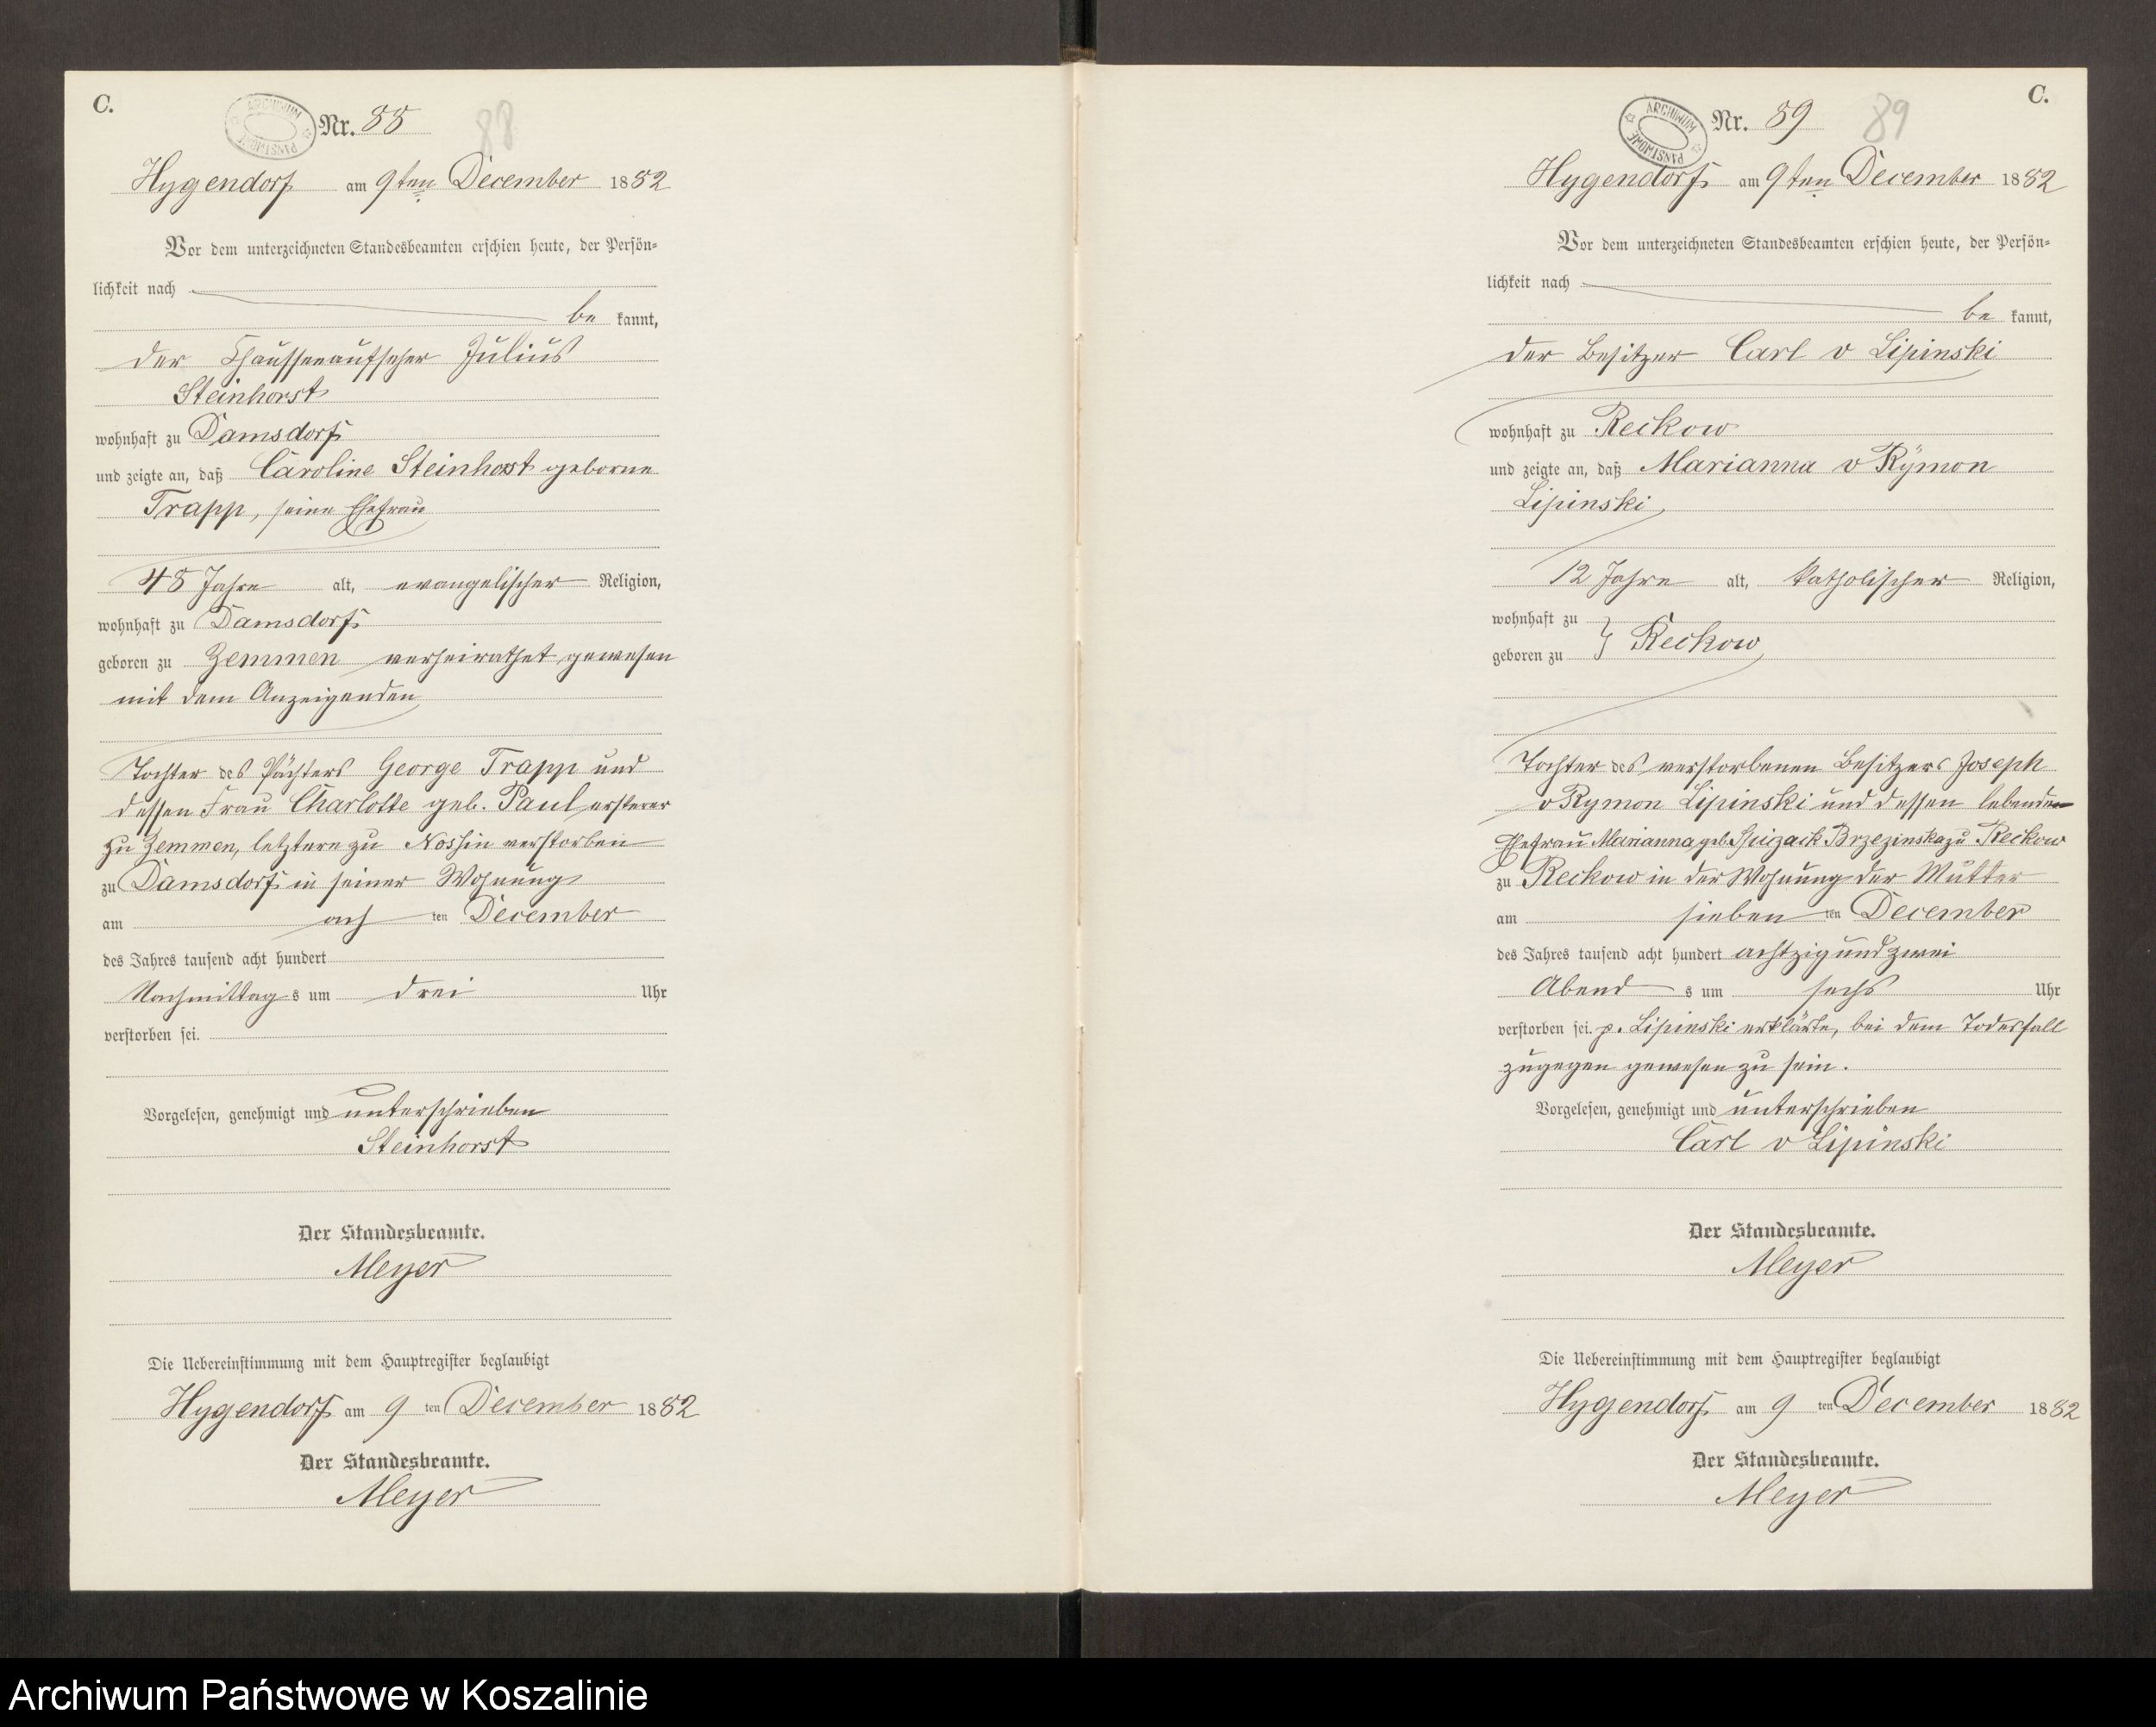 C.
ARCHIWUM PAŃSTWOWE
Nr. 88
88
Hygendorf am 9ten December 1882
Vor dem unterzeichneten Standesbeamten erschien heute, der Persön=
lichkeit nach
be kannt,
der Chausseeaufseher Julius
Steinhorst
wohnhaft zu Damsdorf
und zeigte an, daß Caroline Steinhorst geborne
Trapp, seine Ehefrau
48 Jahre alt, evangelischer Religion,
wohnhaft zu Damsdorf
geboren zu Zemmen verheirathet gewesen
mit dem Anzeigenden
Tochter des Pächters George Trapp und
dessen Frau Charlotte geb. Paul ersterer
zu Zemmen, letztere zu Nossin verstorben
zu Damsdorf in seiner Wohnung
am ach ten December
des Jahres tausend acht hundert
Nachmittag s um drei Uhr
verstorben sei.
Vorgelesen, genehmigt und unterschrieben
Steinhorst
Der Standesbeamte.
Meyer
Die Uebereinstimmung mit dem Hauptregister beglaubigt
Hygendorf am 9 ten December 1882
Der Standesbeamte.
Meyer
C.
ARCHIWUM PAŃSTWOWE
Nr. 89
89
Hygendorf am 9ten December 1882
Vor dem unterzeichneten Standesbeamten erschien heute, der Persön=
lichkeit nach
be kannt,
der Besitzer Carl v Lipinski
wohnhaft zu Reckow
und zeigte an, daß Marianna v Rymon
Lipinski,
12 Jahre alt, katholischer Religion,
wohnhaft zu
geboren zu } Reckow,
Tochter des verstorbenen Besitzers Joseph
v Rymon Lipinski und dessen lebenden
Ehefrau Marianna geb. Spiczack Brzezinska zu Reckow
zu Reckow in der Wohnung der Mutter
am sieben ten December
des Jahres tausend acht hundert achtzig und zwei
Abend s um sechs Uhr
verstorben sei. p. Lipinski erklärte, bei dem Todesfall
zugegen gewesen zu sein.
Vorgelesen, genehmigt und unterschrieben
Carl v Lipinski
Der Standesbeamte.
Meyer
Die Uebereinstimmung mit dem Hauptregister beglaubigt
Hygendorf am 9 ten December 1882
Der Standesbeamte.
Meyer
Archiwum Państwowe w Koszalinie